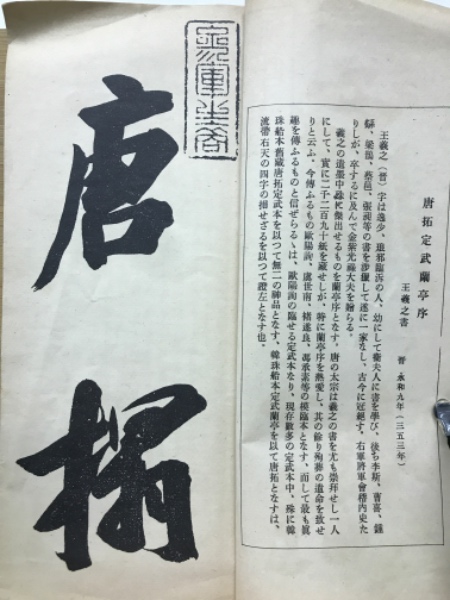 唐拓定武蘭亭序
王羲之書　晉　永和九年（三五三年）
王羲之（晉）字は逸少、瑯邪臨沂の人、幼にして衞夫人に書を學び、後ち李斯、曹喜、鍾
繇、梁鵠、蔡邕、張昶等の書を渉獵して遂に一家をなし、古今に冠絕す、右軍將軍會稽內史た
りしが、卒するに及んで金紫光祿大夫を贈らる。
羲之の遺墨中最も傑出せるものを蘭亭序となす。唐の太宗は羲之の書を尤も崇拜せし一人
にして、實に二千二百九十紙を藏せしが、特に蘭亭序を熱愛し、其の餘り殉葬の遺命を放せ
りと云ふ。今傳ふるもの歐陽詢、虞世南、褚遂良、馮承素等の模臨本となす、而して最も眞
趣を傳ふるものと信ぜらるゝは、歐陽詢の臨せる定武本なり、現存數多の定武本中、殊に韓
珠船本舊藏唐拓定武本を以つて無二の神品となす、韓珠船本定武蘭亭を以て唐拓となすは、
湍帶右天の四字の損せざるを以つて證左となす也。
唐
搨